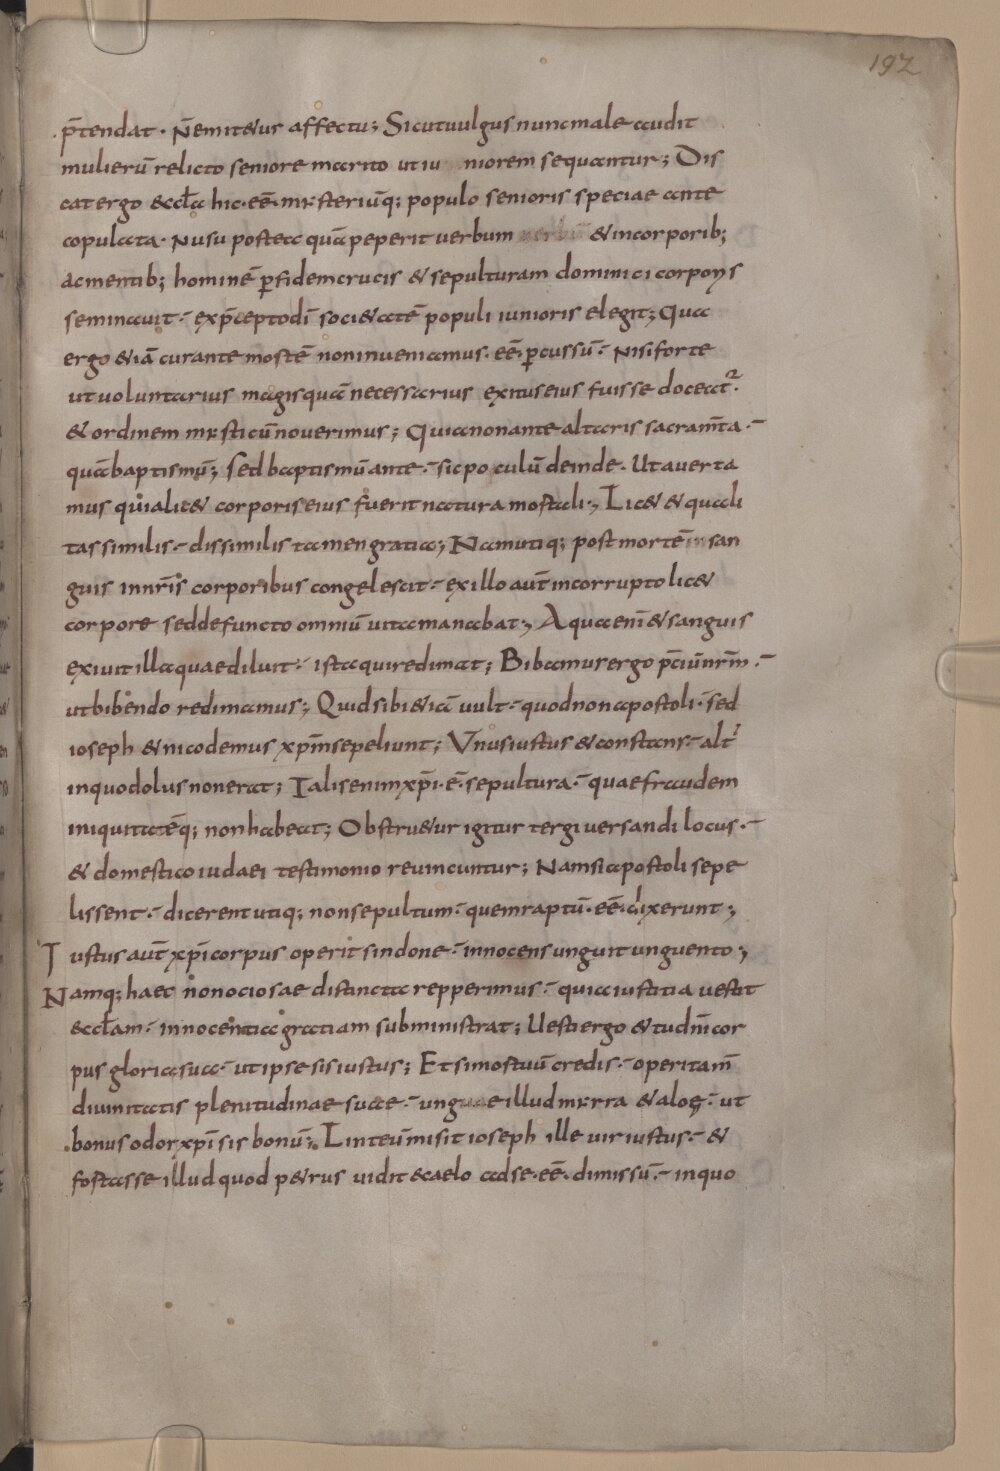 192
p̄tendat · N̄ emit&ur affectu; Sicut uulgus nunc male audit
mulierū relicto seniore marito ut iu niorem sequantur; Dis
cat ergo & eccl̄a hic · eē · mysteriū q; populo senioris speciae ante
copulata · Nusu postea quā peperit uerbum & in corporib;
ac mentib; hominē p fidem crucis & sepulturam dominici corporis
seminauit · ex p̄cepto dī soci&atē populi iunioris elegit; Qua
ergo &iā curante mortē non inueniamus · eē · percussū · Nisi forte
ut uoluntarius magis quā necessarius exitus eius fuisse doceat²·
& ordinem mysticū nouerimus; Quia non ante altaris sacram̄ta ·
quā baptismū; sed baptismū ante · sic poculū deinde · Ut auerta
mus quia lic& corporis eius fuerit natura mortali·, Lic& & quali
tas similis · dissimilis tamen gratia; Nam utiq; post mortē san
guis in nr̄is corporibus congelescit · ex illo aut̄ incorrupto lic&
corpore sed defuncto omniū uita manabat·, Aqua enī & sanguis
exiuit illa quae diluit · ista qui redimat; Bibamus ergo p̄ciū nr̄m ·
ut bibendo redimamus; Quid sibi &iā uult · quod non apostoli · sed
ioseph & nicodemus xp̄m sepeliunt; Unus iustus & constans · alt̄
in quo dolus non erat; Talis enim xp̄i · ē · sepultura · quae fraudem
iniquitatēq; non habeat; Obstru&ur igitur tergiuersandi locus ·
& domestico iudaei testimonio reuincuntur; Nam si apostoli sepe
lissent · dicerent utiq; non sepultum · quem raptū · eē · dixerunt;
Iustus aut̄ xp̄i corpus operit sindone · innocens unguit unguento;
Namq; haec non ociosae distincta repperimus · quia iustitia uestit
& eccl̄am · innocentia gratiam subministrat; Uesti ergo & tu dn̄i cor
pus gloria sua · ut ipse sis iustus; Et si mortuū credis · operi tam̄
diuinitatis plenitudinae suae · ungue illud myrra & aloe · ut
bonus odor xp̄i sis bonū; Linteū misit ioseph ille uir iustus · &
fortasse illud quod p&rus uidit e caelo ad se · eē · dimissū · in quo